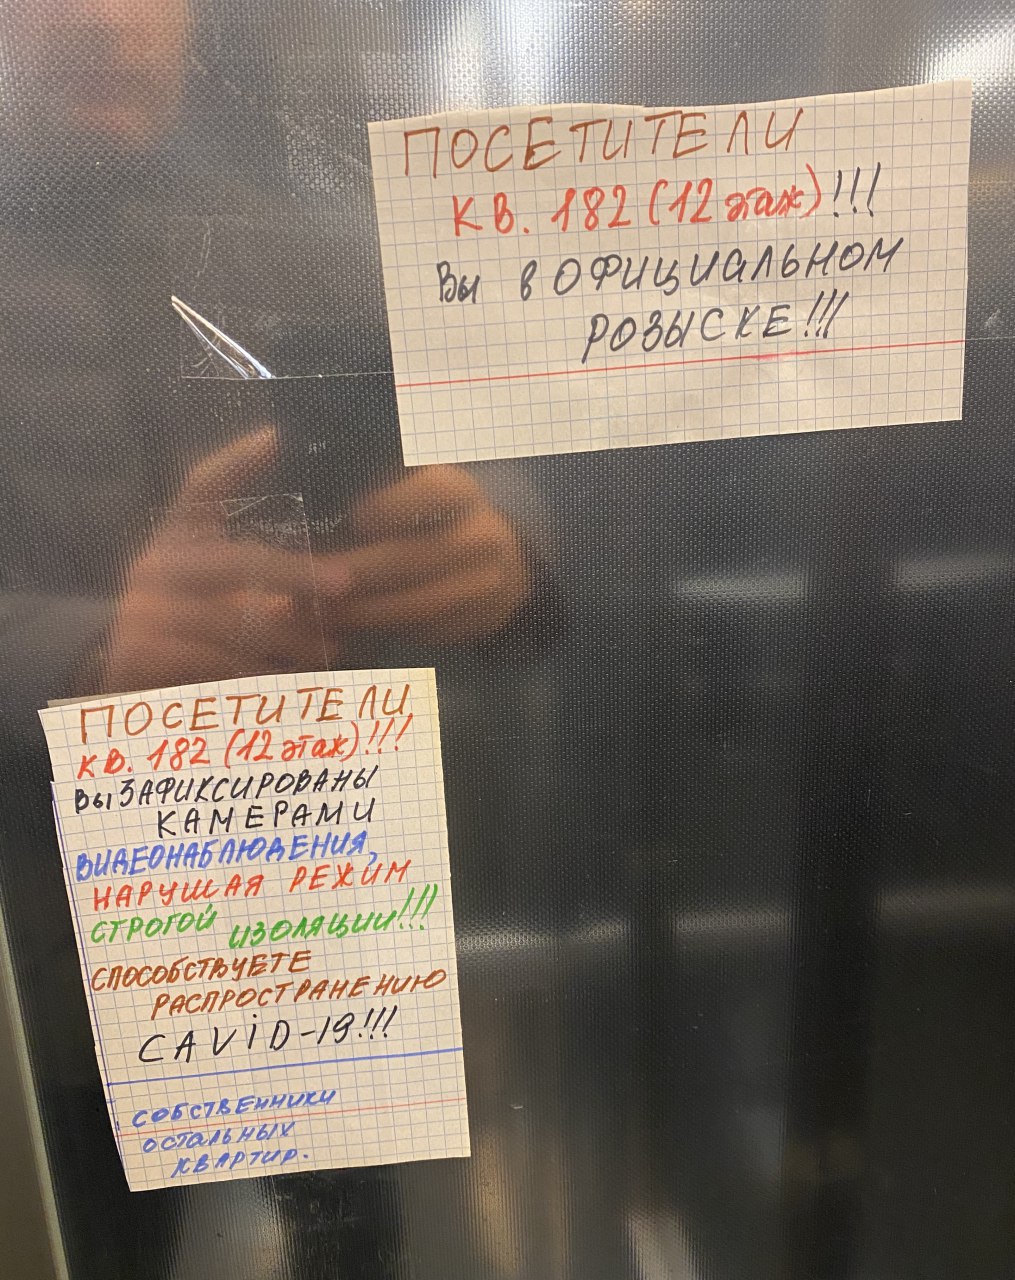 ПОСЕТИТЕЛИ
КВ. 182 (12 этаж)!!!
Вы в ОФИЦИАЛЬНОМ
РОЗЫСКЕ!!!
ПОСЕТИТЕЛИ
КВ. 182 (12 этаж)!!!
Вы ЗАФИКСИРОВАНЫ
КАМЕРАМИ
ВИДЕОНАБЛЮДЕНИЯ,
НАРУШАЯ РЕЖИМ
СТРОГОЙ ИЗОЛЯЦИИ!!!
СПОСОБСТВУЕТЕ
РАСПРОСТРАНЕНИЮ
CAViD-19!!!
СОБСТВЕННИКИ
ОСТАЛЬНЫХ
КВАРТИР.